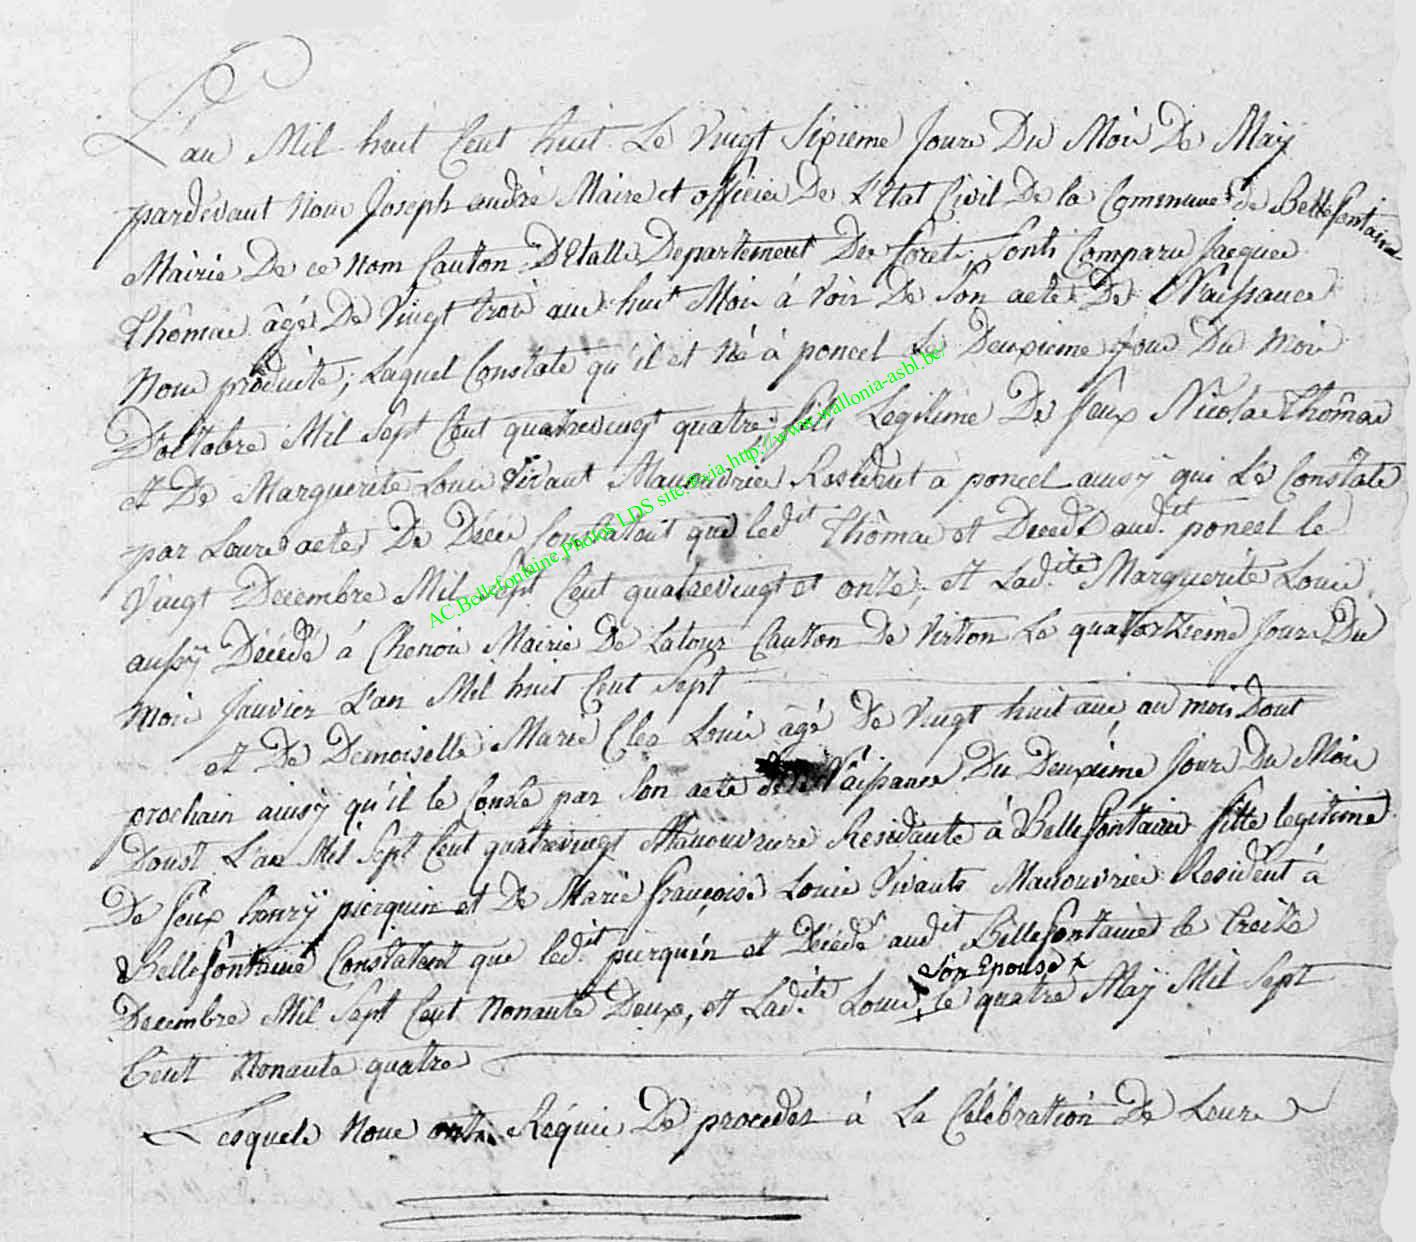 L'an Mil huit Cent huit Le Vingt Sixieme Jour Du Mois De May
pardevant Nous Joseph andré Maire et officier De L'Etat Civil De la Commune de Bellefontaine
Mairie De ce Nom Canton D'Etalle Departement Des Forets, Sont Comparu Jacques
Thômas âgé De Vingt trois ans huit Mois à Voir De Son acte De Naissance
Nous produite; Laquel Constate qu'il et Né à poncel Le Deuxieme Jour Du Mois
D'octobre Mil Sept Cent quatrevingt quatre fils Legitime De feux Nicolas Thômas
et De Marguerite Louis Vivant Manouvrier Resident à poncel ausy qui Le Constate
par Leurs actes De Décès Constatant que ledit Thômas et Decedé audit poncel le
Vingt Decembre Mil Sept Cent quatrevingt et onze, et Ladite Marguerite Louis
aussy Décédé à Chenois Mairie De Latour Canton De Virton Le quatorzieme Jour Du
Mois Janvier L'an Mil huit Cent Sept
et De Demoiselle Marie Cleo Louis âgé De Vingt huit ans au mois Dout
prochain ainsy qu'il le Conste par Son acte de Naissance Du Deuxiéme Jour Du Mois
Doust L'an Mil Sept Cent quatrevingt Manouvriere Residante à Bellefontaine fille legitime
De feux henrÿ pierquin et De Marie françoise Louis Vivants Manouvrier Resident à
Bellefontaine Constatent que ledit pierquin et Décédé audit Bellefontaine le treize
Son Epouse
Decembre Mil Sept Cent Nonante Deux, et Ladite Louis, le quatre Maÿ Mil Sept
Cent Nonante quatre
Lesquels Nous ont Réquis De proceder à La Célébration De Leurs
AC.Bellefontaine.Photos LDS site #via http://www.wallonia-asbl.be/